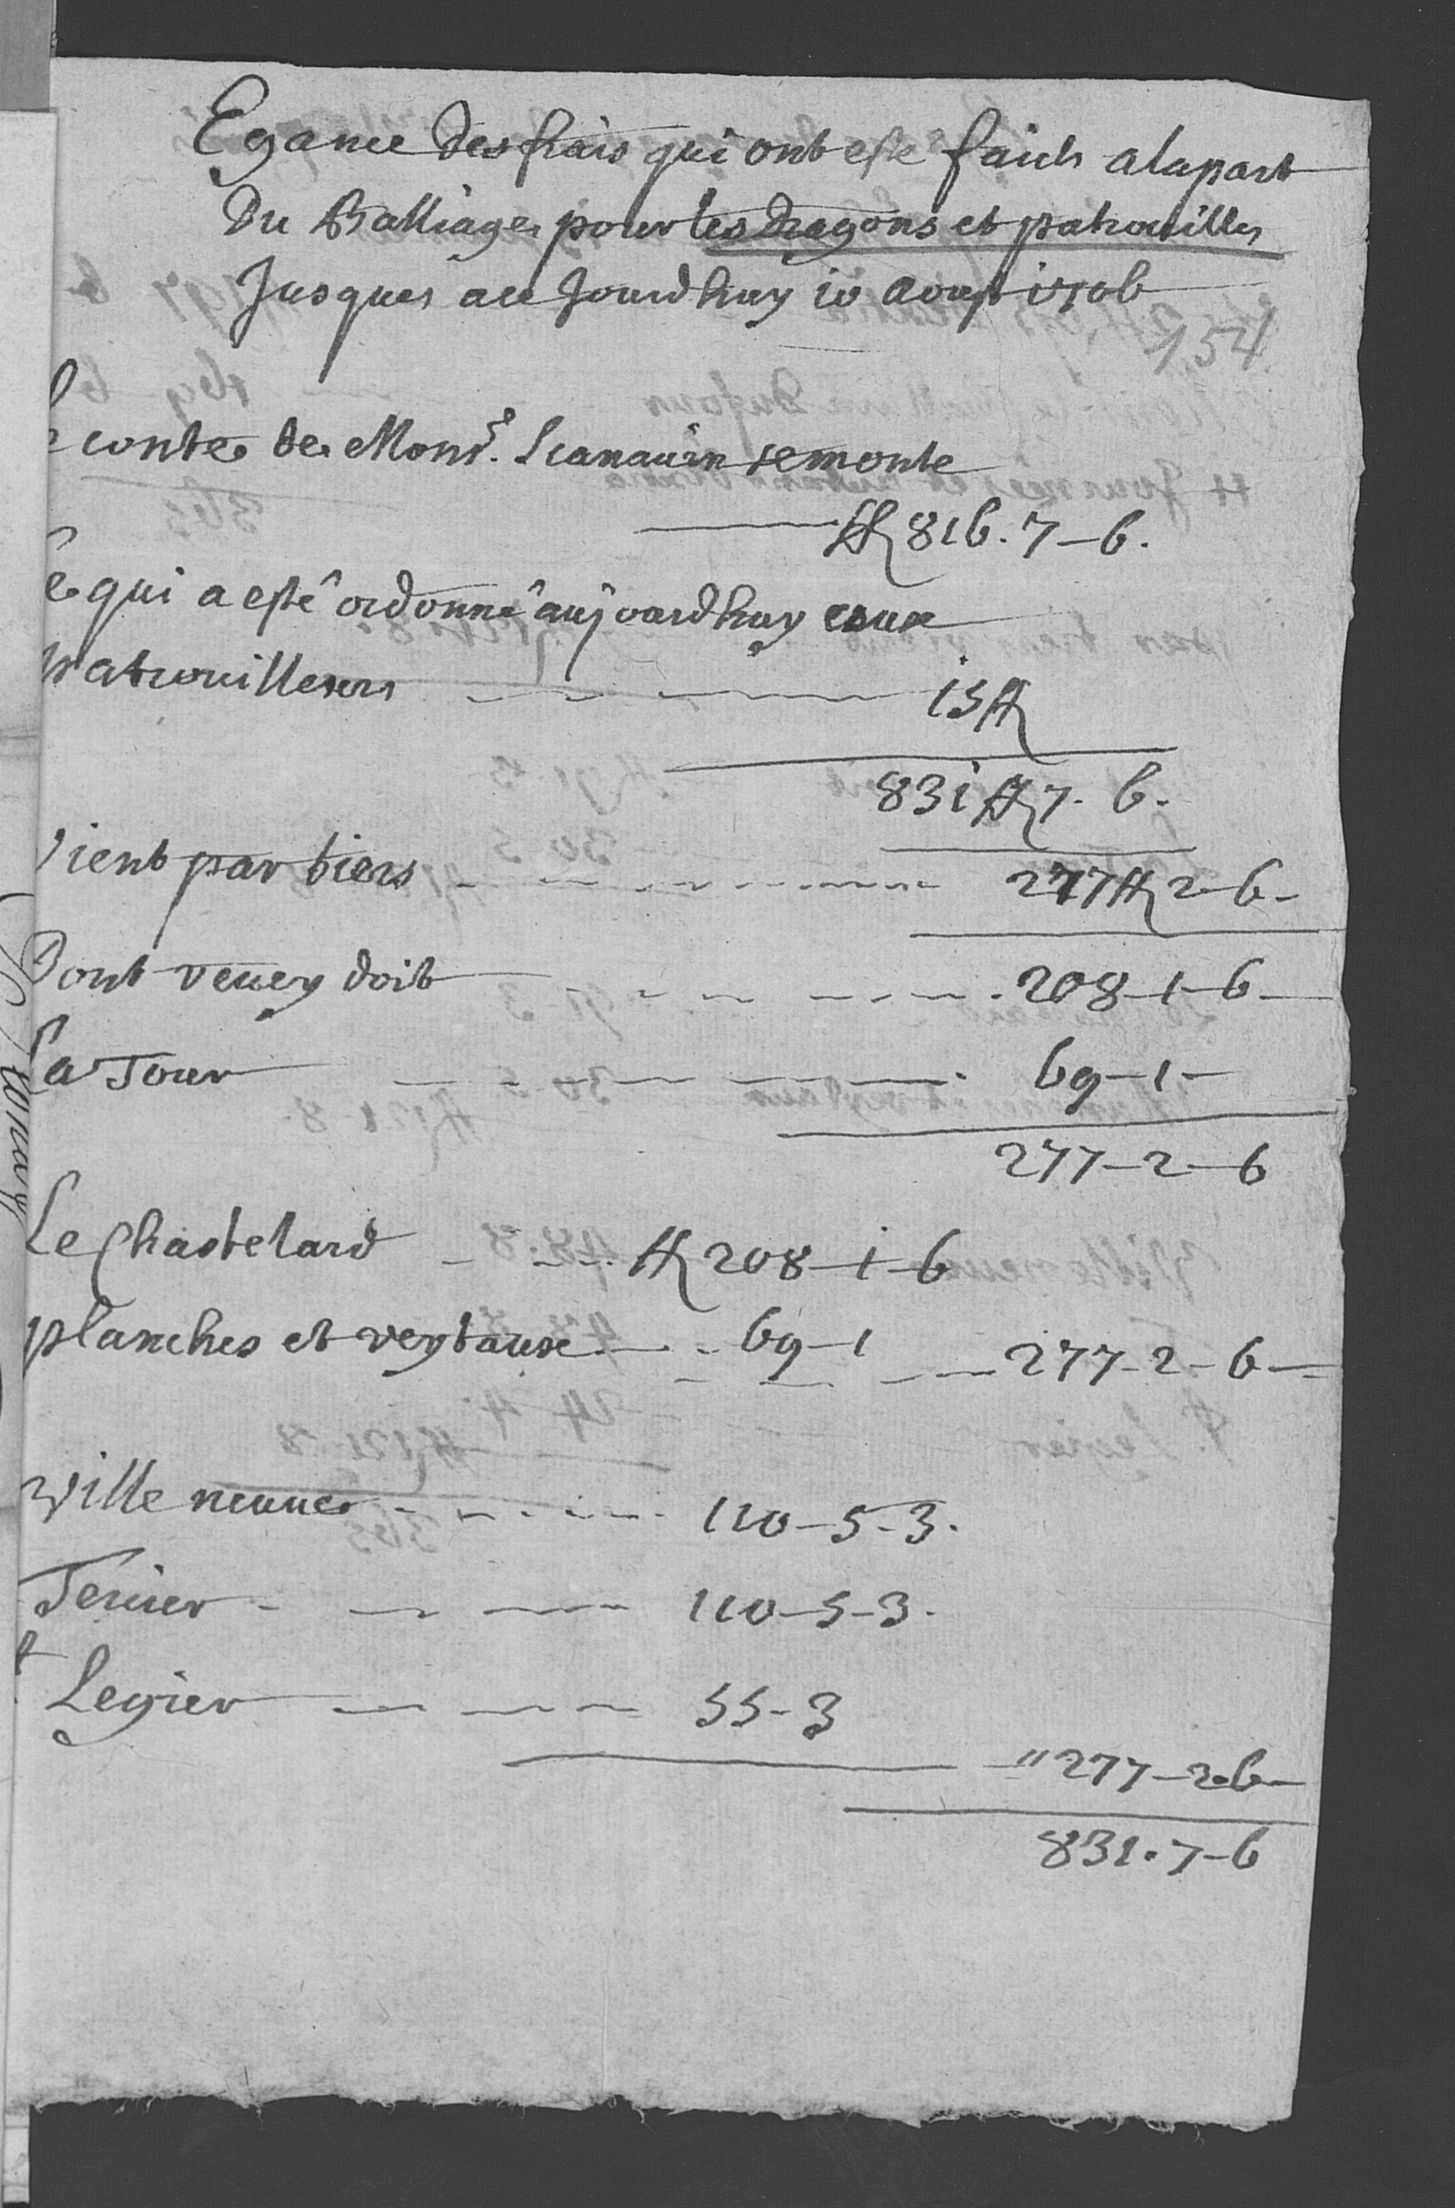 Egance des frais qui ont esté faicts a la part
Du Balliage pour les dragons et patrouilles
Jusques a ce Jourdhuy 10 aoust 1706
154
Le conte de Mons.r Scanauin se monte
ff 816. 7 - 6.
Ce qui a esté ordonné aujourdhuy
patrouilleurs - - - 15 ff
831 ff 7. 6.
Vient par tiers - - - 277 ff 2 - 6 -
Dont veuey doit - - - 208 - 1 - 6
La Tour - - - 69 - 1 -
277 - 2 - 6
Le Chastelard - - - ff 208 - 1 - 6
planches et veytaux - - 69 - 1 - - 277 - 2 - 6
Ville neuue - - - 110 - 5 - 3.
Teruer - - - 110 - 5 - 3.
St Legier - - - 55 - 3
" 277 - 2. 6
831. 7 - 6